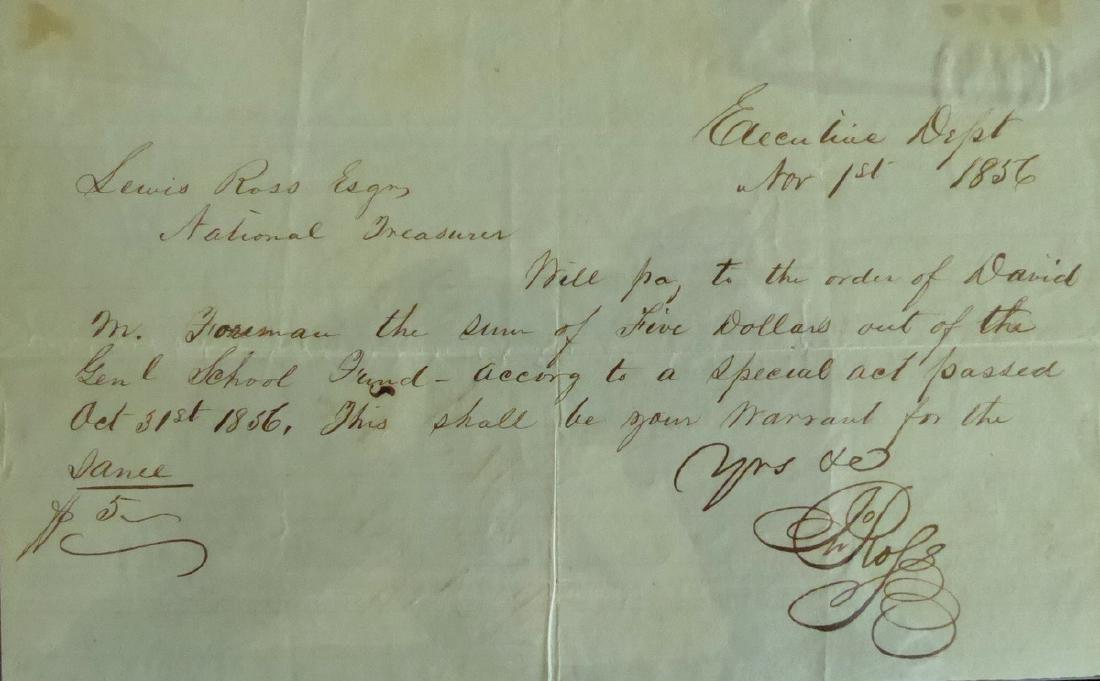 Executive Dept
Nov 1st 1856
Lewis Ross Esqr,
National Treasurer
Will pay to the order of David
M. Foreman the sum of Five Dollars out of the
Genl School Fund - accorg to a special act passed
Oct 31st 1856. This shall be your Warrant for the
Same
$ 5
Yrs &c
Jno Ross